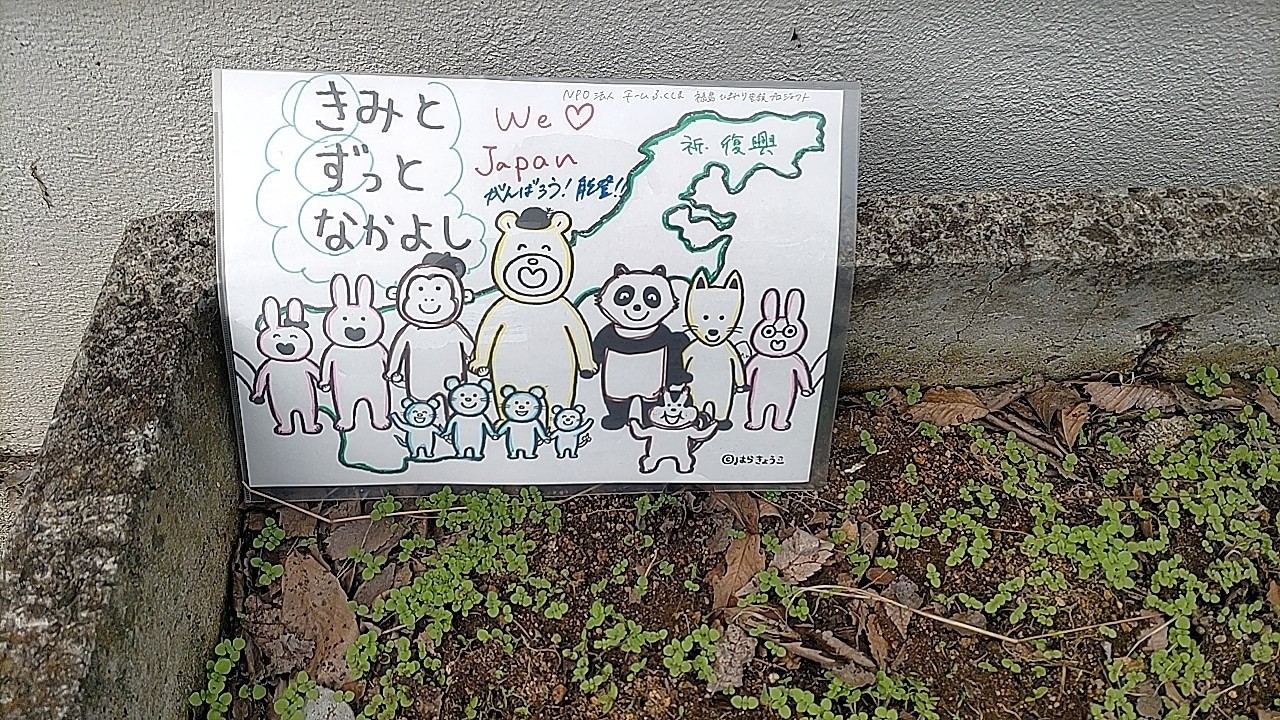 NPO法人 チームふくしま 福島ひまわり里親プロジェクト
きみと
ずっと
なかよし
We ♡
Japan
がんばろう!能登!!
祈 復興
©はらきょうこ